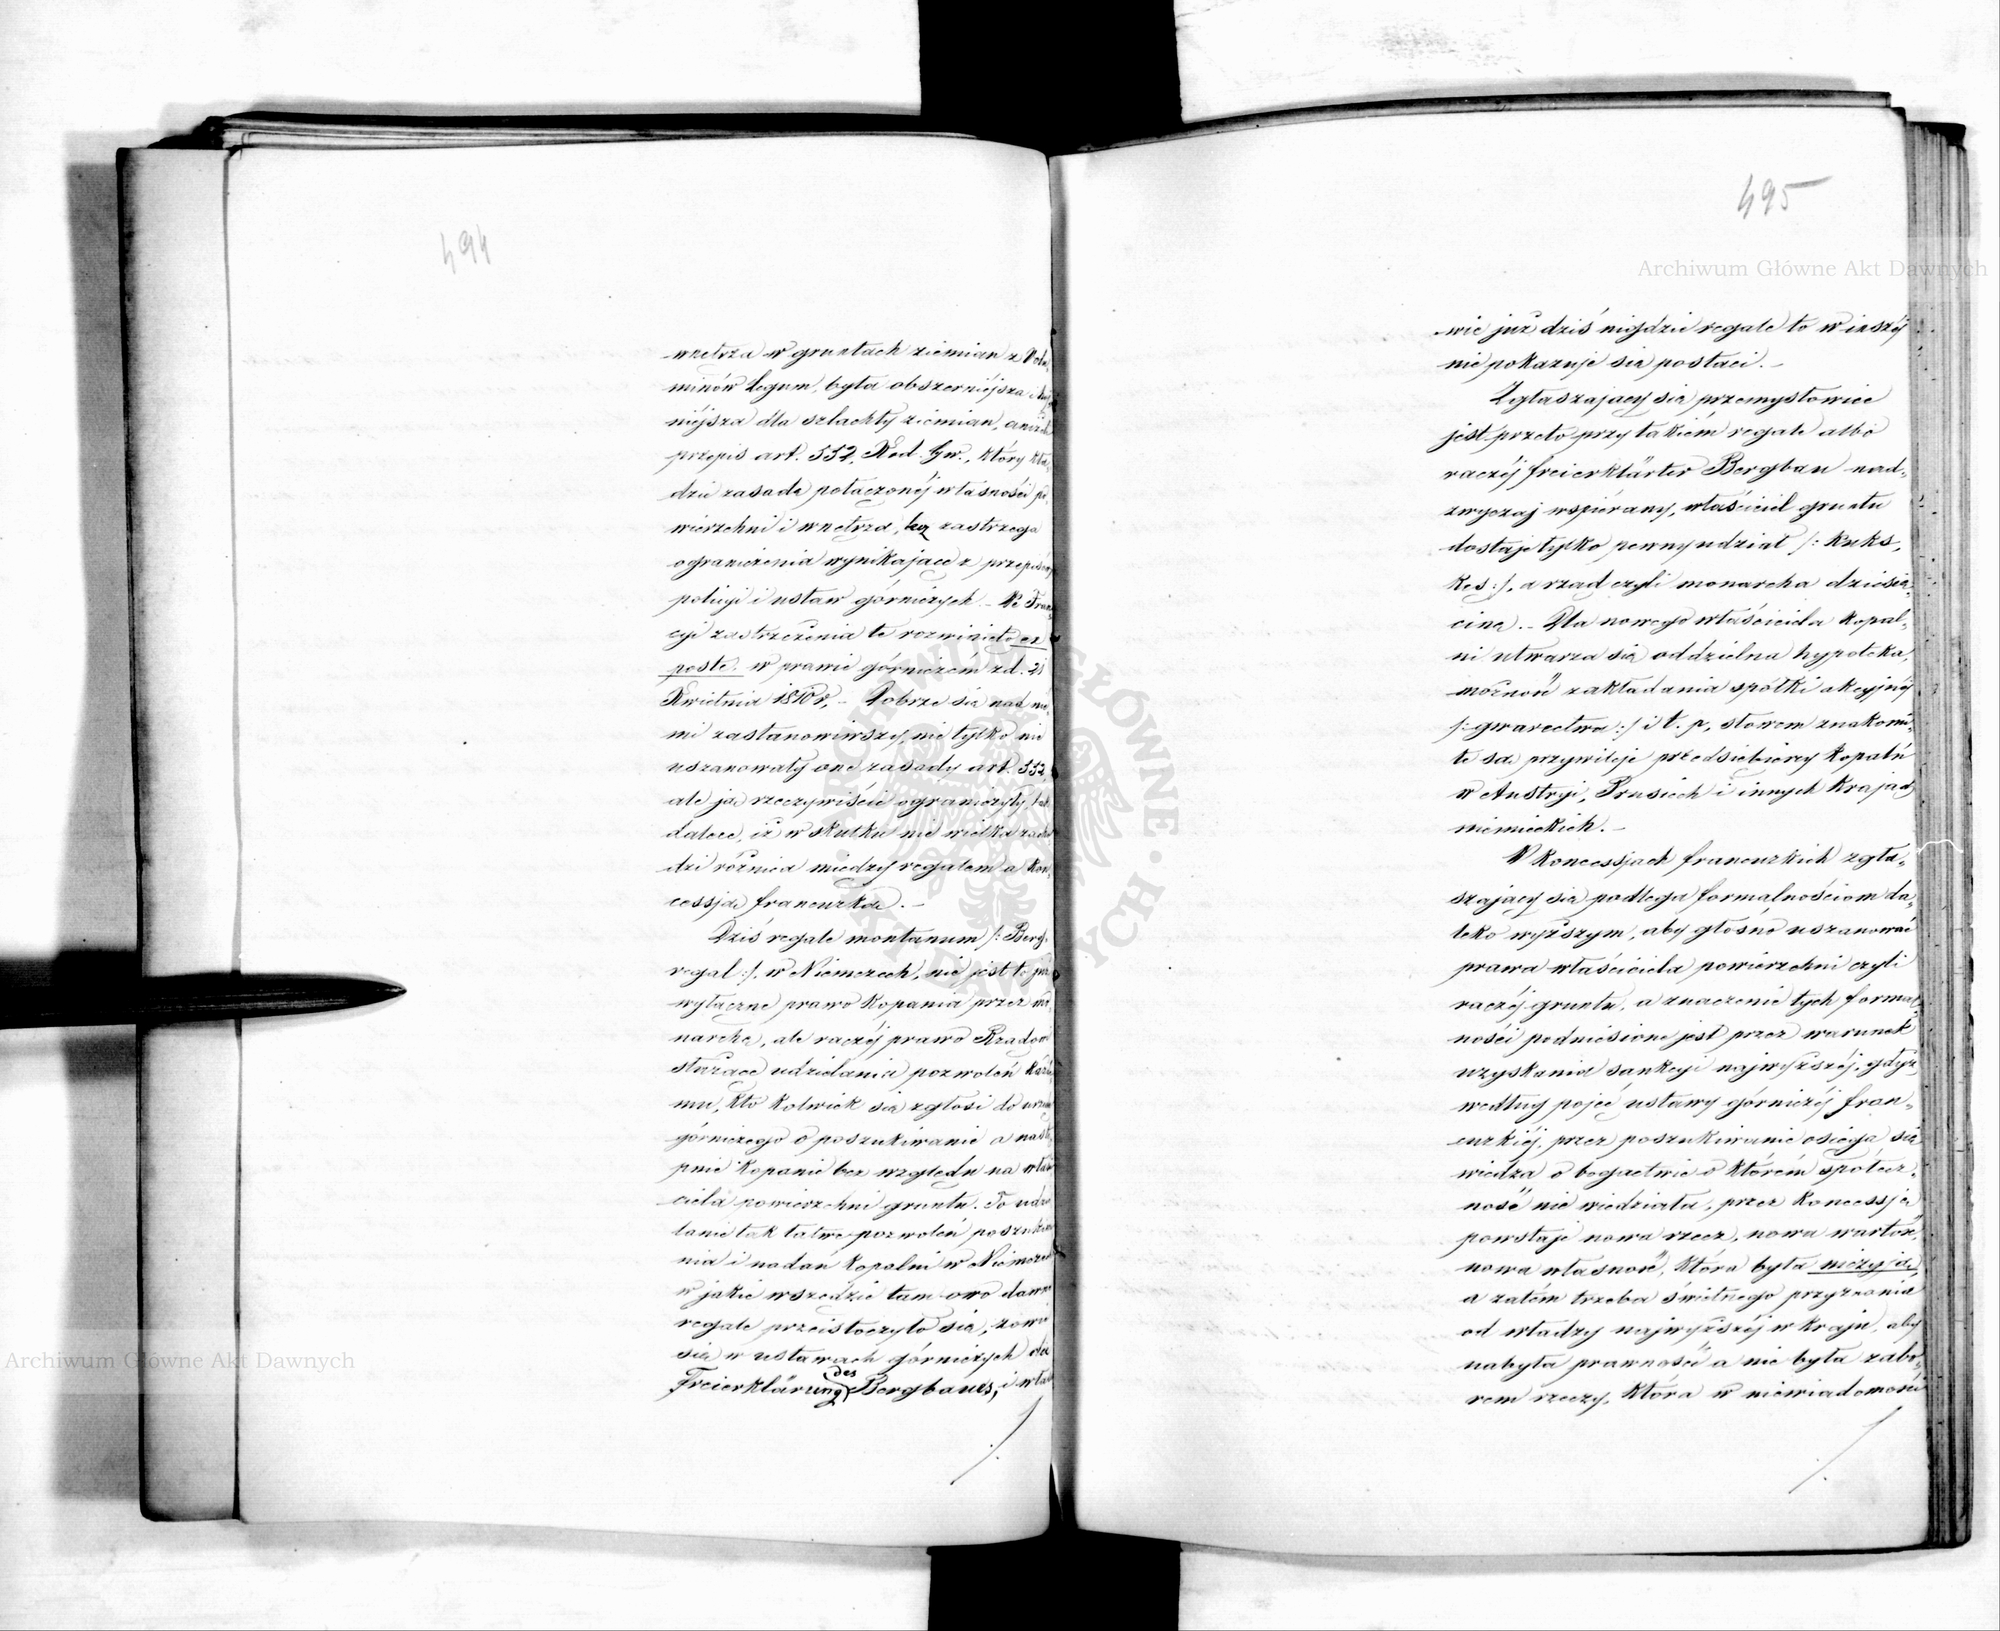 494
wnętrza w gruntach ziemian z Volu,
minów Legum, była obszerniejsza i
niéjsza dla szlachty ziemian, aniżeli
przepis art. 552, Kod. Cyw., który kła,
dzie zasadę połączonéj własności po,
wierzchni i wnętrza, lecz zastrzega
ograniczenia wynikające z przepisów
policyi i ustaw górniczych. – We Fran,
cyi zastrzeżenia te rozwinięto ex
poste. w prawie górniczém z d. 21
Kwietnia 1810 r, – Dobrze się nad nie,
mi zastanowiwszy, nie tylko nie
uszanowały one zasady art. 552,
ale ją rzeczywiście ograniczyły, tak
dalece, iż w skutku nie wielka zacho,
dzi różnica między regalem a kon,
cessją francuzką. –
Dziś regale montanum /: Berg,
regal :/, w Niemczech, nie jest to już
wyłączne prawo kopania przez mo,
narchę, ale raczéj prawo Rządowi
służące udzielania pozwoleń każde,
mu, kto kolwiek się zgłosi do urzędu
górniczego o poszukiwanie a nastę,
pnie kopanie bez względu na właści
ciela powierzchni gruntu. To udzie
lanie tak łatwe pozwoleń poszukiwa
nia i nadań kopalni w Niemczech
w jakie wszędzie tam owo dawne
regale przeistoczyło się, zowie
się w ustawach górniczych die
Freierklärung des Bergbaues, i wła
495
wie już dziś nigdzie regale to w inszéj
nie pokazuje się postaci. –
Zgłaszający się przemysłowiec
jest przeto przy takiém regale albo
raczéj freierklärter Bergbau nad,
zwyczaj wspiérany, właściciel gruntu
dostaje tylko pewny udział /: Kuks,
Kes :/, a rząd czyli monarcha dziesię,
cinę. – Dla nowego właściciela kopal,
ni utwarza się oddzielna hypoteka,
możność zakładania spółki akcyjnéj
/: gwarectwa :/ i t. p, słowem znakomi,
te są przywileje przedsiębiercy kopalń
w Austryi, Prusiech i innych krajach
niemieckich. –
W koncessjach francuzkich zgła,
szający się podlega formalnościom da,
leko wyższym, aby głośno uszanować
prawa właściciela powierzchni czyli
raczéj gruntu, a znaczenie tych formal,
ności podniesione jest przez warunek
uzyskania sankcyi najwyższéj, gdyż
według pojęć ustawy górniczéj fran,
cuzkiéj, przez poszukiwanie osięga się
wiedza o bogactwie o którém społecz,
ność nie wiedziała, przez koncessję
powstaje nowa rzecz, nowa wartość,
nowa własność, która była niczyją,
a zatém trzeba świetnego przyznania
od władzy najwyższéj w kraju, aby
nabyła prawności a nie była zabo,
rem rzeczy, która w niewiadomości
Archiwum Główne Akt Dawnych
Archiwum Główne Akt Dawnych